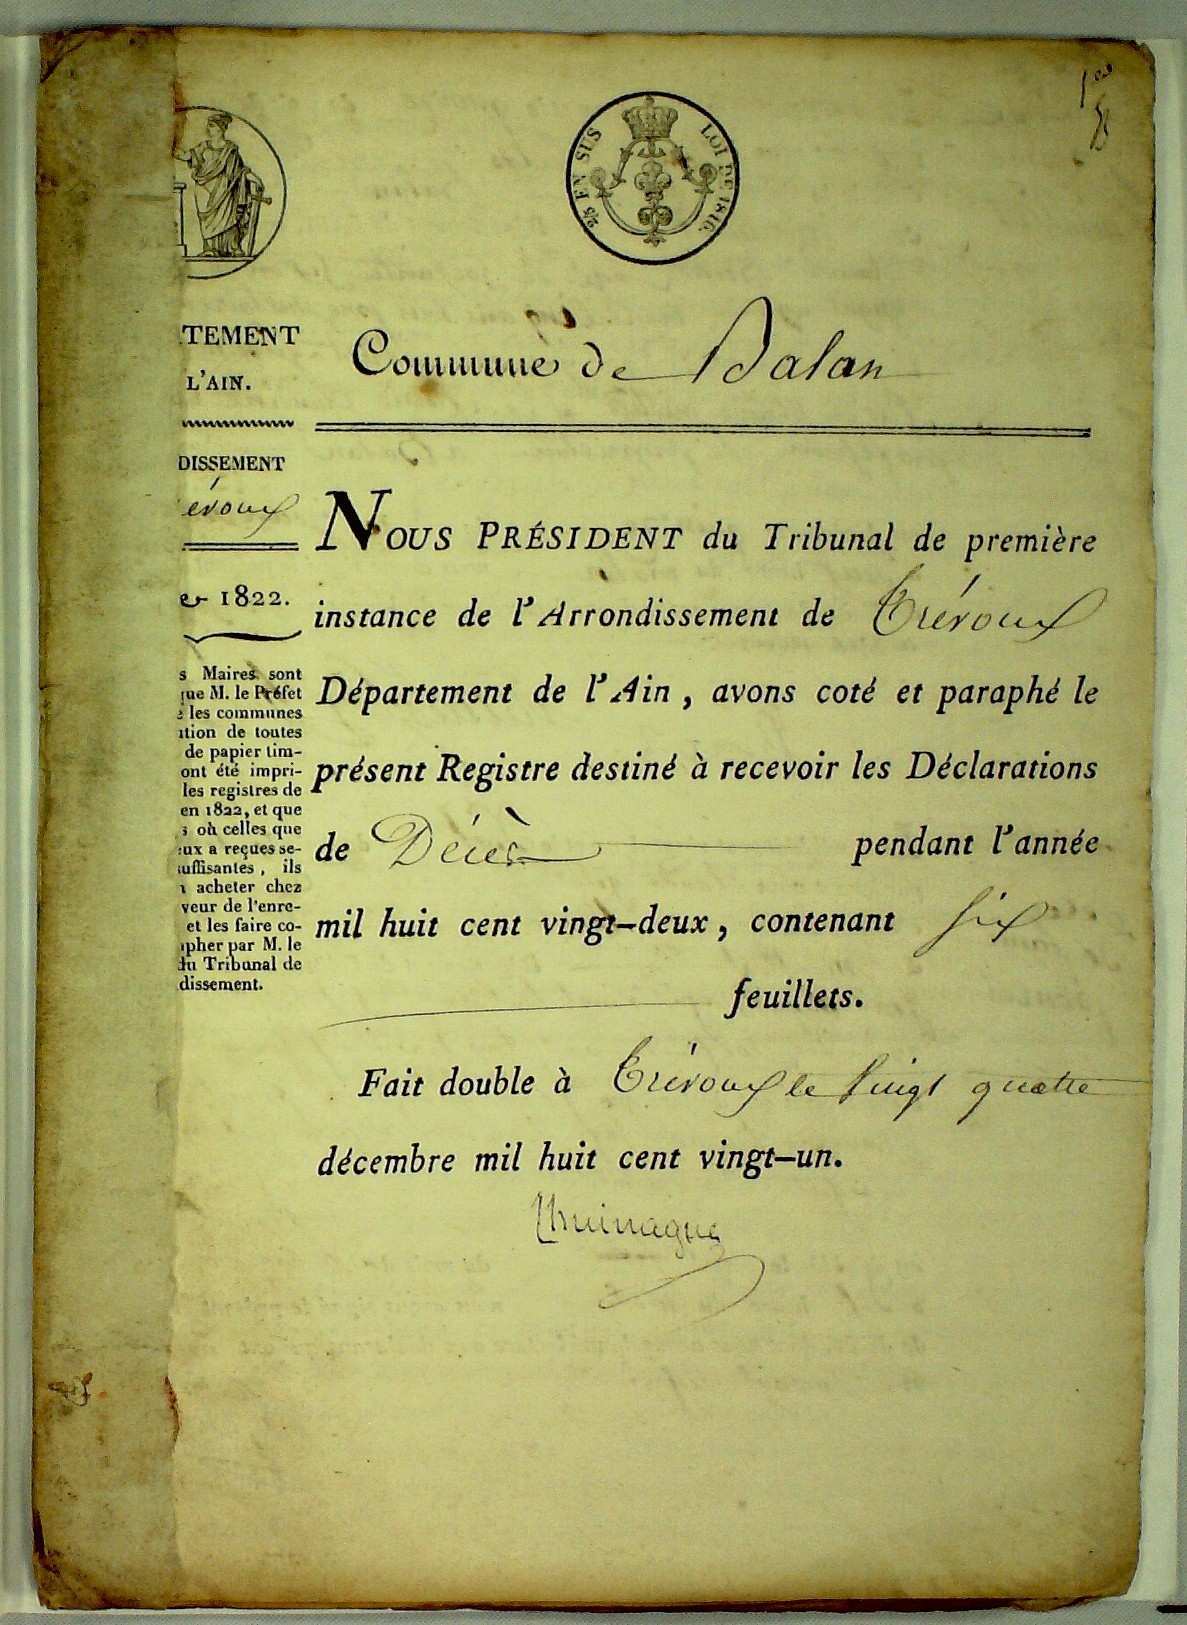 1er
2/5 EN SUS LOI DE 1816.
TEMENT
L'AIN.
DISSEMENT
évoux
er 1822.
s Maires sont
que M. le Préfet
é les communes
ition de toutes
de papier tim-
ont été impri-
les registres de
en 1822, et que
s où celles que
eux a reçues se-
suffisantes, ils
à acheter chez
veur de l'enre-
et les faire co-
apher par M. le
du Tribunal de
dissement.
Commune de Balan
NOUS PRÉSIDENT du Tribunal de première
instance de l'Arrondissement de Trévoux
Département de l'Ain, avons coté et paraphé le
présent Registre destiné à recevoir les Déclarations
de Décès pendant l'année
mil huit cent vingt-deux, contenant six
feuillets.
Fait double à Trévoux le vingt quatre
décembre mil huit cent vingt-un.